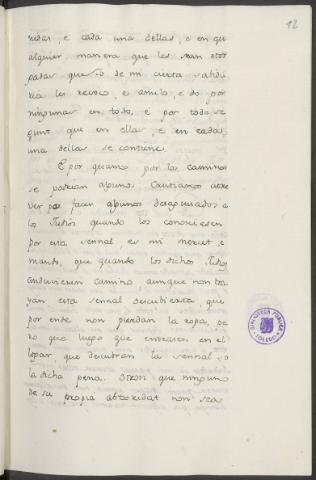 12
ridas, e cada una dellas, e en qu
alquier manera que les sean otor
gadas que yo de mi cierta sabidu
ria les revoco, e anulo, e do por
ningunas en todo, e por todo se
gunt que en ellas, e en cada
una dellas se contiene.
E por quanto por los caminos
se podrian algunos Christianos atre
ver por facer algunos desaguisados a
los Judios quando los conosciesen
por esta sennal, es mi merced, e
mando, que quando los dichos Judios
andovieren camino, aunque non tra
yan esta sennal descubierta, que
por ende non pierdan la ropa, pe
ro que luego que entraren en el
logar, que descubran la sennal so
la dicha pena. Otrosi que ninguno
de su propia abtoridat non sea
BIBLIOTECA PUBLICA
TOLEDO